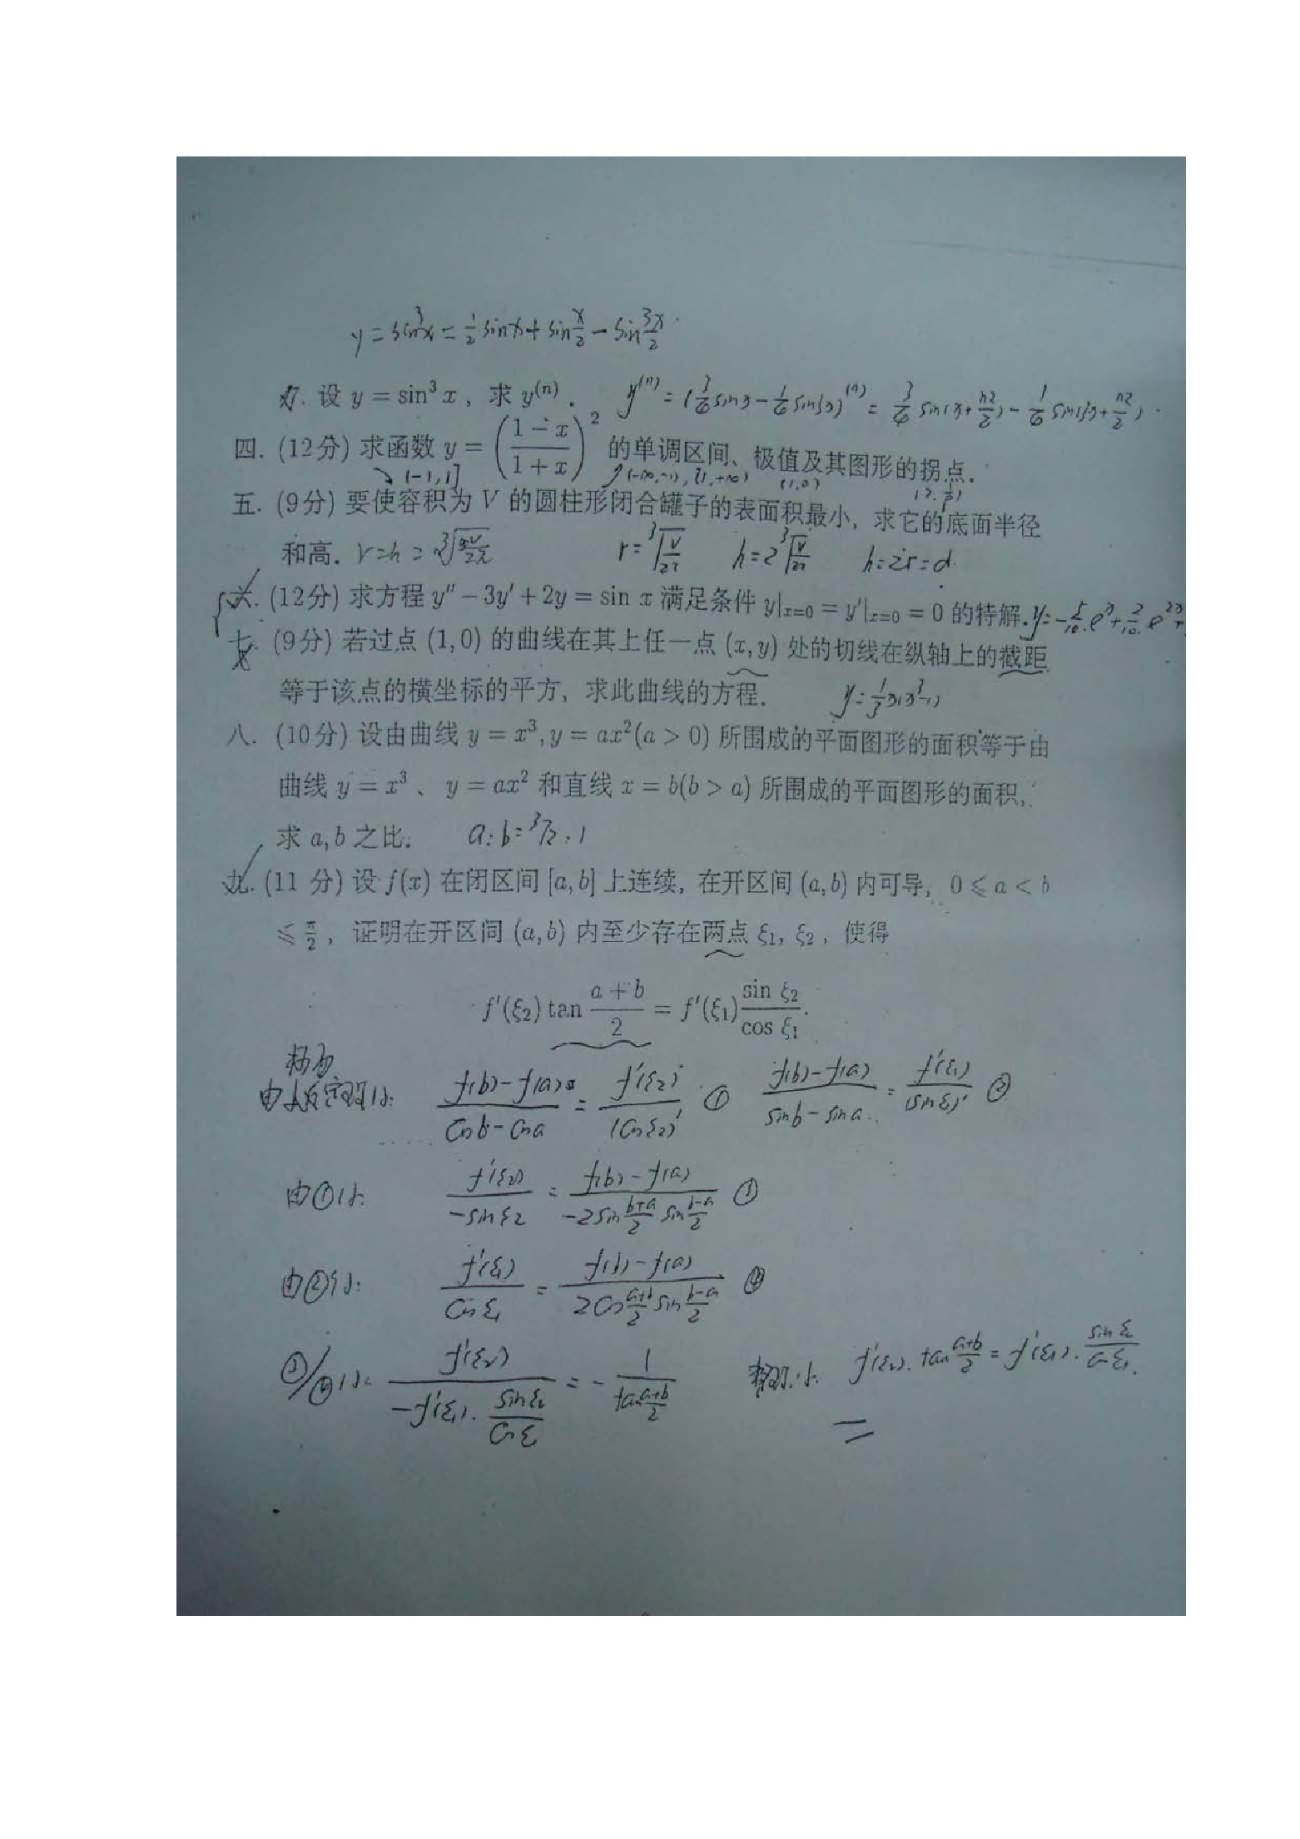 y = sin³x = ½ sin x + sin x/2 − sin 3x/2
7. 设 y = sin³ x , 求 y⁽ⁿ⁾ .
四. (12分) 求函数 y = ((1 − x)/(1 + x))² 的单调区间、极值及其图形的拐点.
↘ (-1,1] ↗(-∞,-1), [1,+∞) (1,0)
五. (9分) 要使容积为 V 的圆柱形闭合罐子的表面积最小, 求它的底面半径
和高. h=2r=d
六. (12分) 求方程 y″ − 3y′ + 2y = sin x 满足条件 y|ₓ₌₀ = y′|ₓ₌₀ = 0 的特解.
七. (9分) 若过点 (1,0) 的曲线在其上任一点 (x,y) 处的切线在纵轴上的截距
等于该点的横坐标的平方, 求此曲线的方程.
八. (10分) 设由曲线 y = x³, y = ax²(a > 0) 所围成的平面图形的面积等于由
曲线 y = x³ 、 y = ax² 和直线 x = b(b > a) 所围成的平面图形的面积,
求 a, b 之比. a:b=
九. (11 分) 设 f(x) 在闭区间 [a,b] 上连续, 在开区间 (a,b) 内可导, 0 ⩽ a < b
⩽ π/2 , 证明在开区间 (a,b) 内至少存在两点 ξ₁, ξ₂ , 使得
f′(ξ₂) tan (a + b)/2 = f′(ξ₁) sin ξ₂/cos ξ₁.
(f(b)−f(a))/(cos b − cos a) = f′(ξ₂)/(cos ξ₂)′ ① (f(b)−f(a))/(sin b − sin a) = f′(ξ₁)/(sin ξ₁)′ ②
由①得: f′(ξ₂)/(−sin ξ₂) = (f(b)−f(a))/(−2 sin (b+a)/2 sin (b−a)/2) ③
由②得: f′(ξ₁)/cos ξ₁ = (f(b)−f(a))/(2 cos (a+b)/2 sin (b−a)/2) ④
③/④得: f′(ξ₂)/(−f′(ξ₁)· sin ξ₂/cos ξ₁) = − 1/(tan (a+b)/2) f′(ξ₂)· tan (a+b)/2 = f′(ξ₁)· sin ξ₂/cos ξ₁.